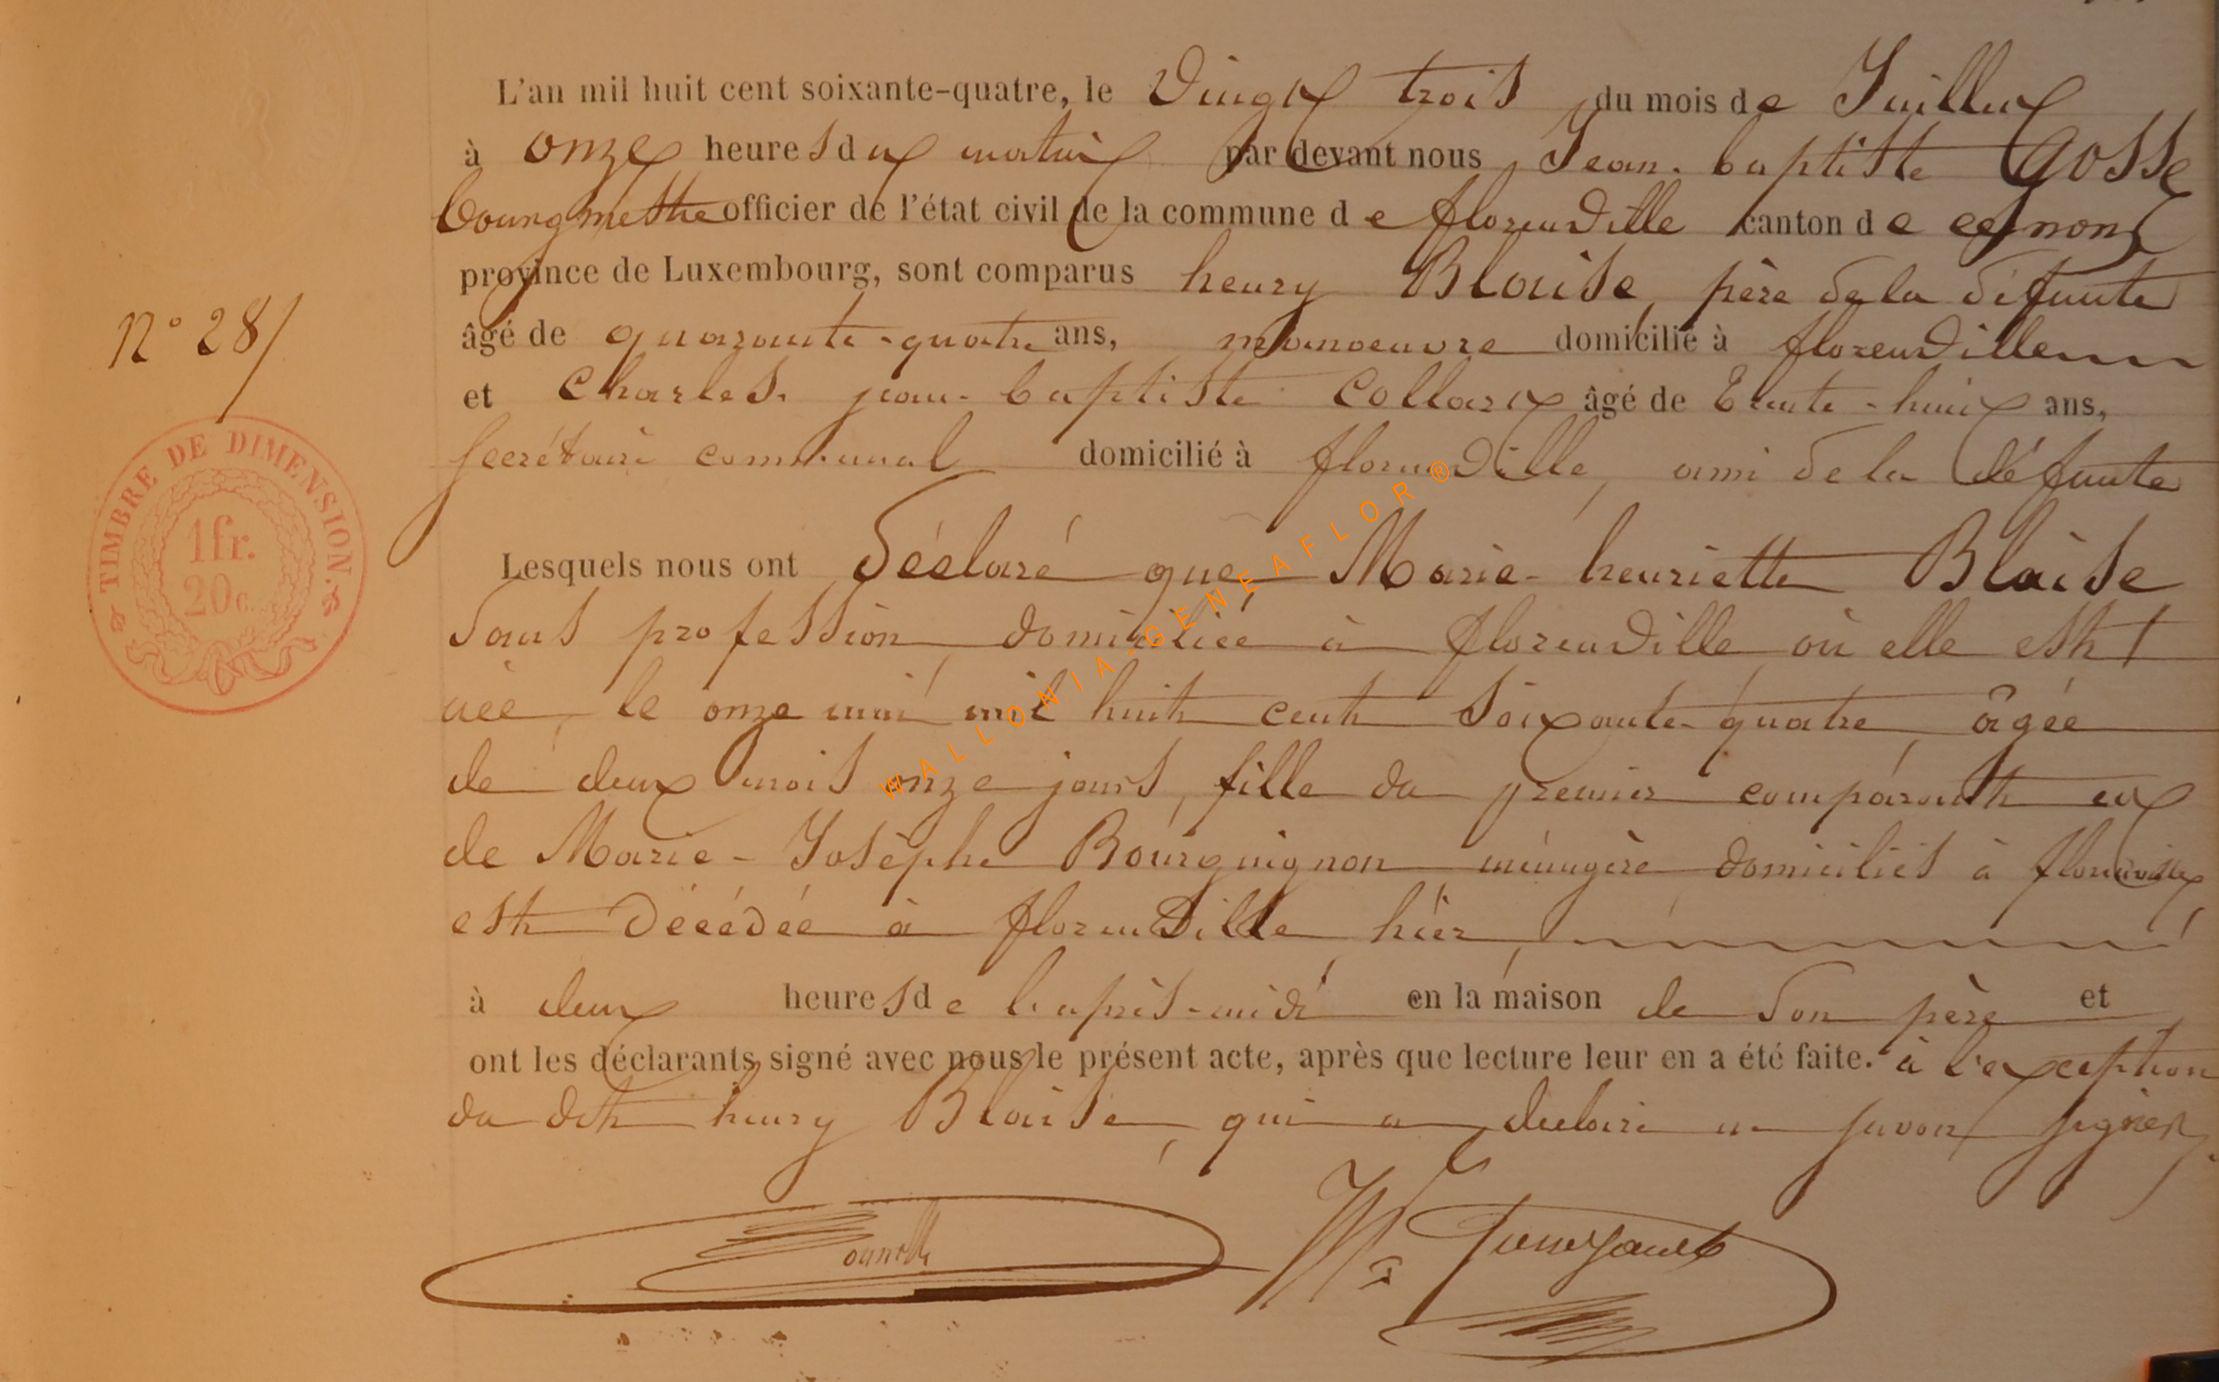 L'an mil huit cent soixante-quatre, le Vingt trois du mois de Juillet
à onze heures du matin par devant nous Jean-baptiste Gosse
bourgmestre officier de l'état civil de la commune de florenville canton de
province de Luxembourg, sont comparus henry Blaise, père de la défunte
âgé de quarante-quatre ans, manoeuvre domicilié à florenville
N° 28/
et Charles-jean-baptiste Collart âgé de trente-huit ans,
secrétaire communal domicilié à florenville, ami de la défunte
TIMBRE DE DIMENSION.
1fr.
20c.
Lesquels nous ont déclaré que Marie-henriette Blaise
sans profession, domiciliée à florenville où elle est
née, le onze mai mil huit cent soixante-quatre, âgée
de deux mois onze jours, fille du premier comparant et
de Marie-Josèphe Bourguignon ménagère domiciliés à florenville,
est décédée à florenville, hier,
à deux heures de l'après-midi en la maison de son père et
ont les déclarants signé avec nous le présent acte, après que lecture leur en a été faite. à l'exception
du dit henry Blaise, qui a déclaré ne savoir signer.
WALLONIA-GENEAFLOR®